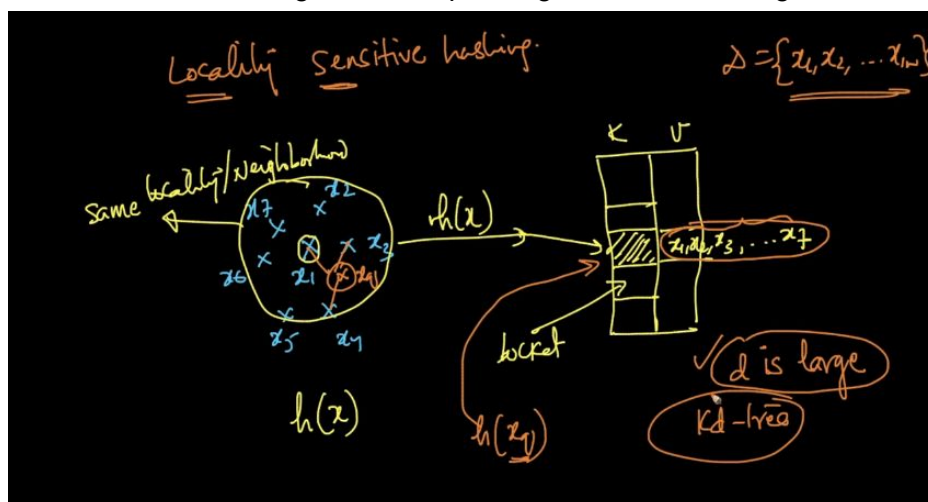 Locality sensitive hashing.
D = {x1, x2, ... xn}
K V
same locality/Neighborhood
x7 x2
x6 x1 xq x3
x5 x4
h(x)
x1, x2, x3, ... x7
bucket
✓ d is large
Kd-tree
h(x)
h(xq)